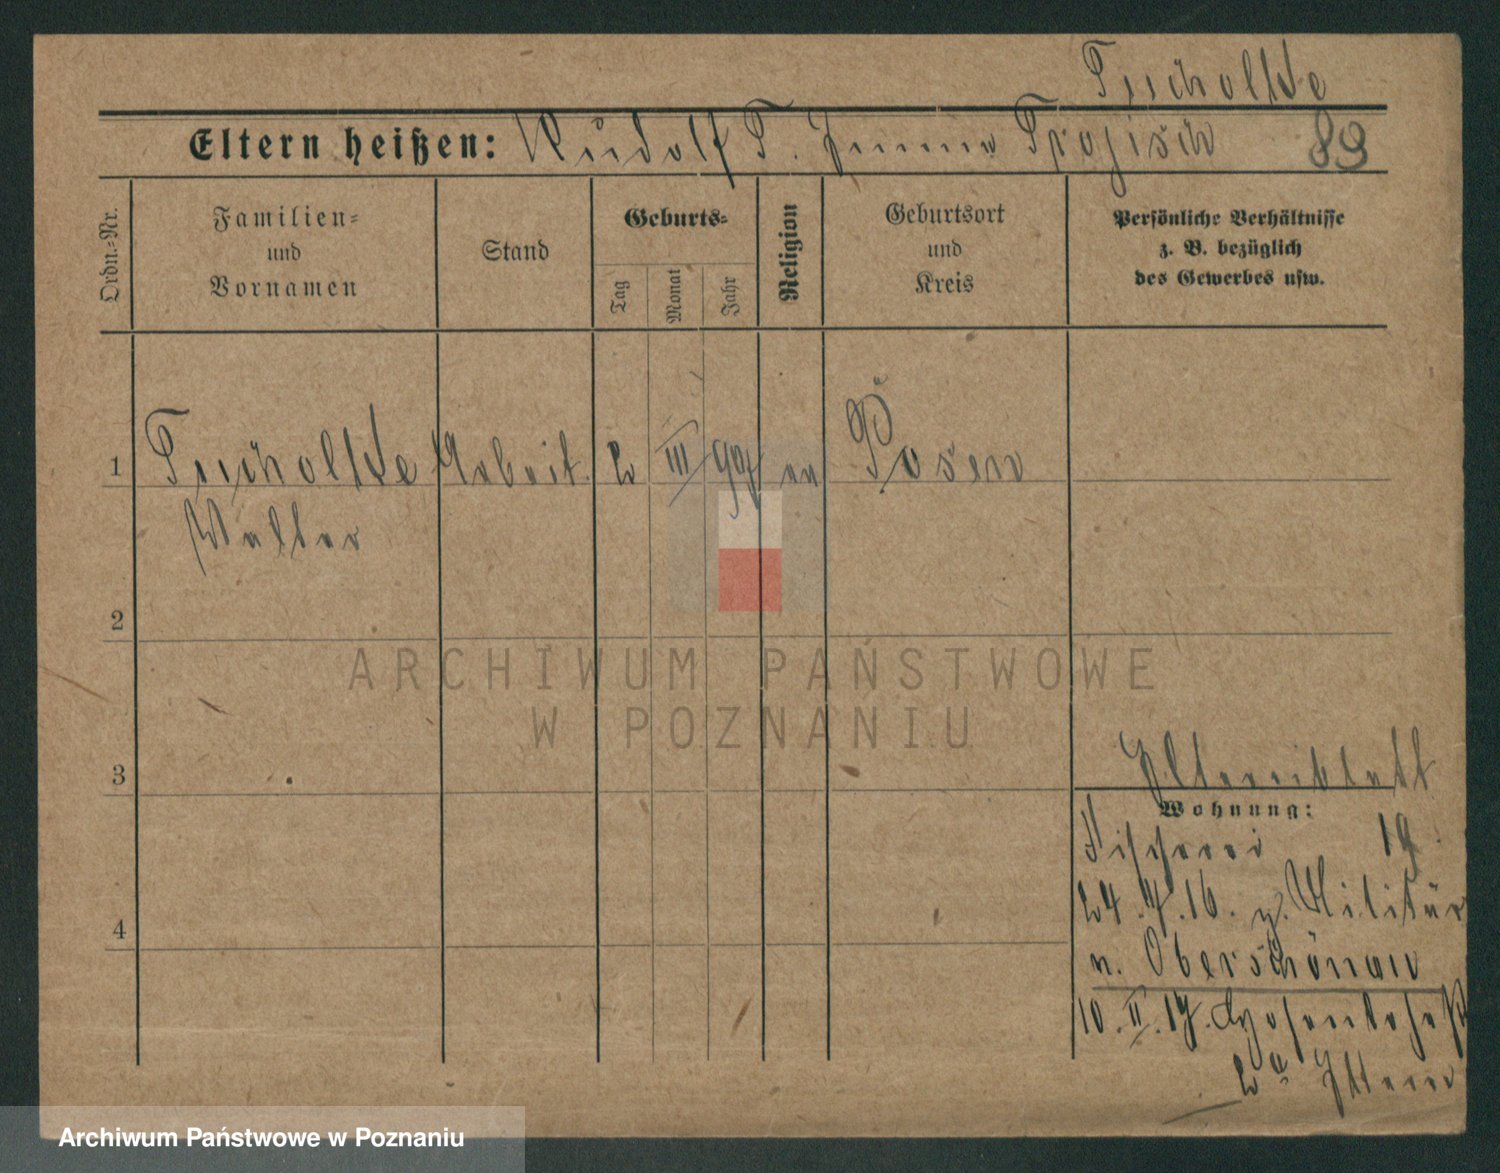 Tucholke
Eltern heißen: Rudolf T. Emma Trojisch 83
Ordn.=Nr.
Familien=
und
Vornamen
Stand
Geburts=
Tag
Monat
Jahr
Religion
Geburtsort
und
Kreis
Persönliche Verhältnisse
z. B. bezüglich
des Gewerbes usw.
1 Tucholke Arbeit. 2 III 97 ev Posen
Walter
2
ARCHIWUM PAŃSTWOWE
W POZNANIU
3
Elternblatt
Wohnung:
Fischerei 19
24.4.16. z. Militär
n. Oberschönau
10.II.17.
2a Eltern
4
Archiwum Państwowe w Poznaniu